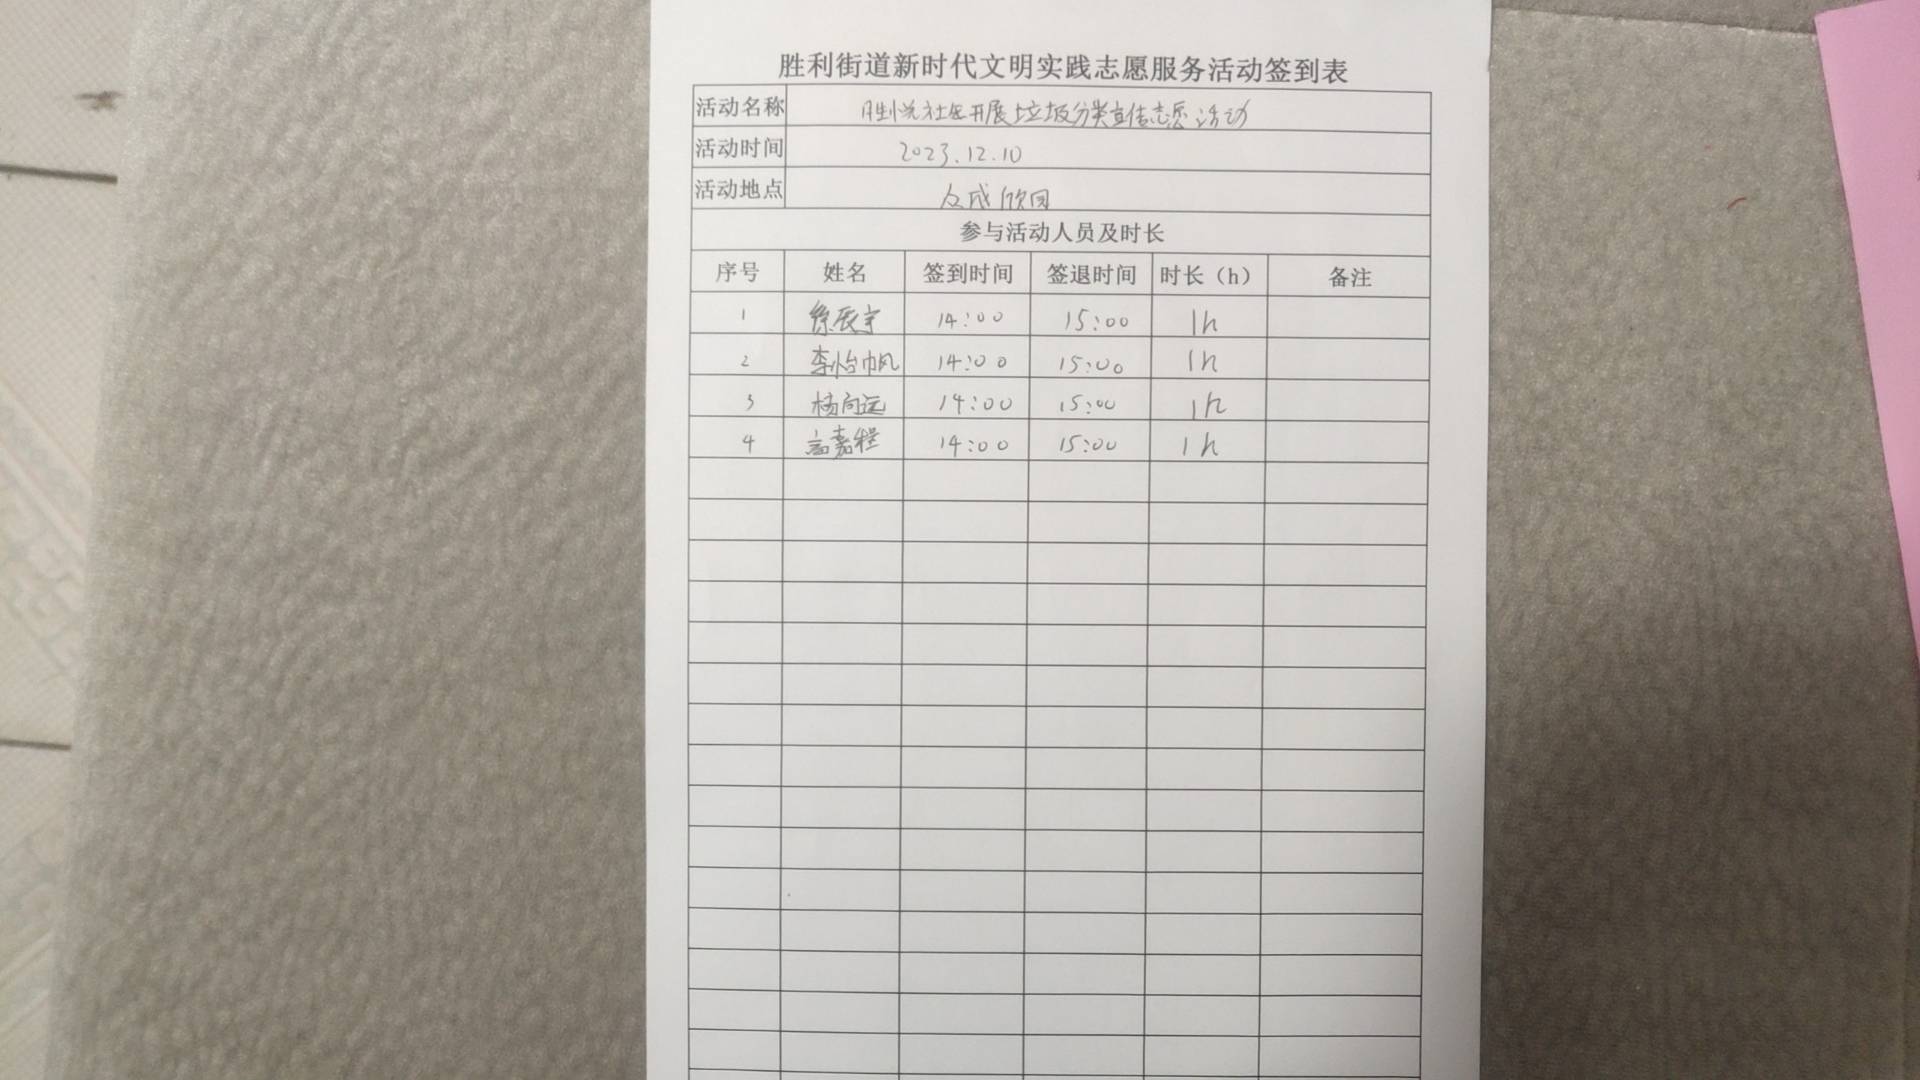 胜利街道新时代文明实践志愿服务活动签到表
活动名称 胜悦社区开展垃圾分类宣传志愿活动
活动时间 2023.12.10
活动地点 众成欣园
参与活动人员及时长
序号 姓名 签到时间 签退时间 时长（h） 备注
1 徐辰宇 14:00 15:00 1h
2 李怡帆 14:00 15:00 1h
3 杨向远 14:00 15:00 1h
4 高嘉程 14:00 15:00 1h